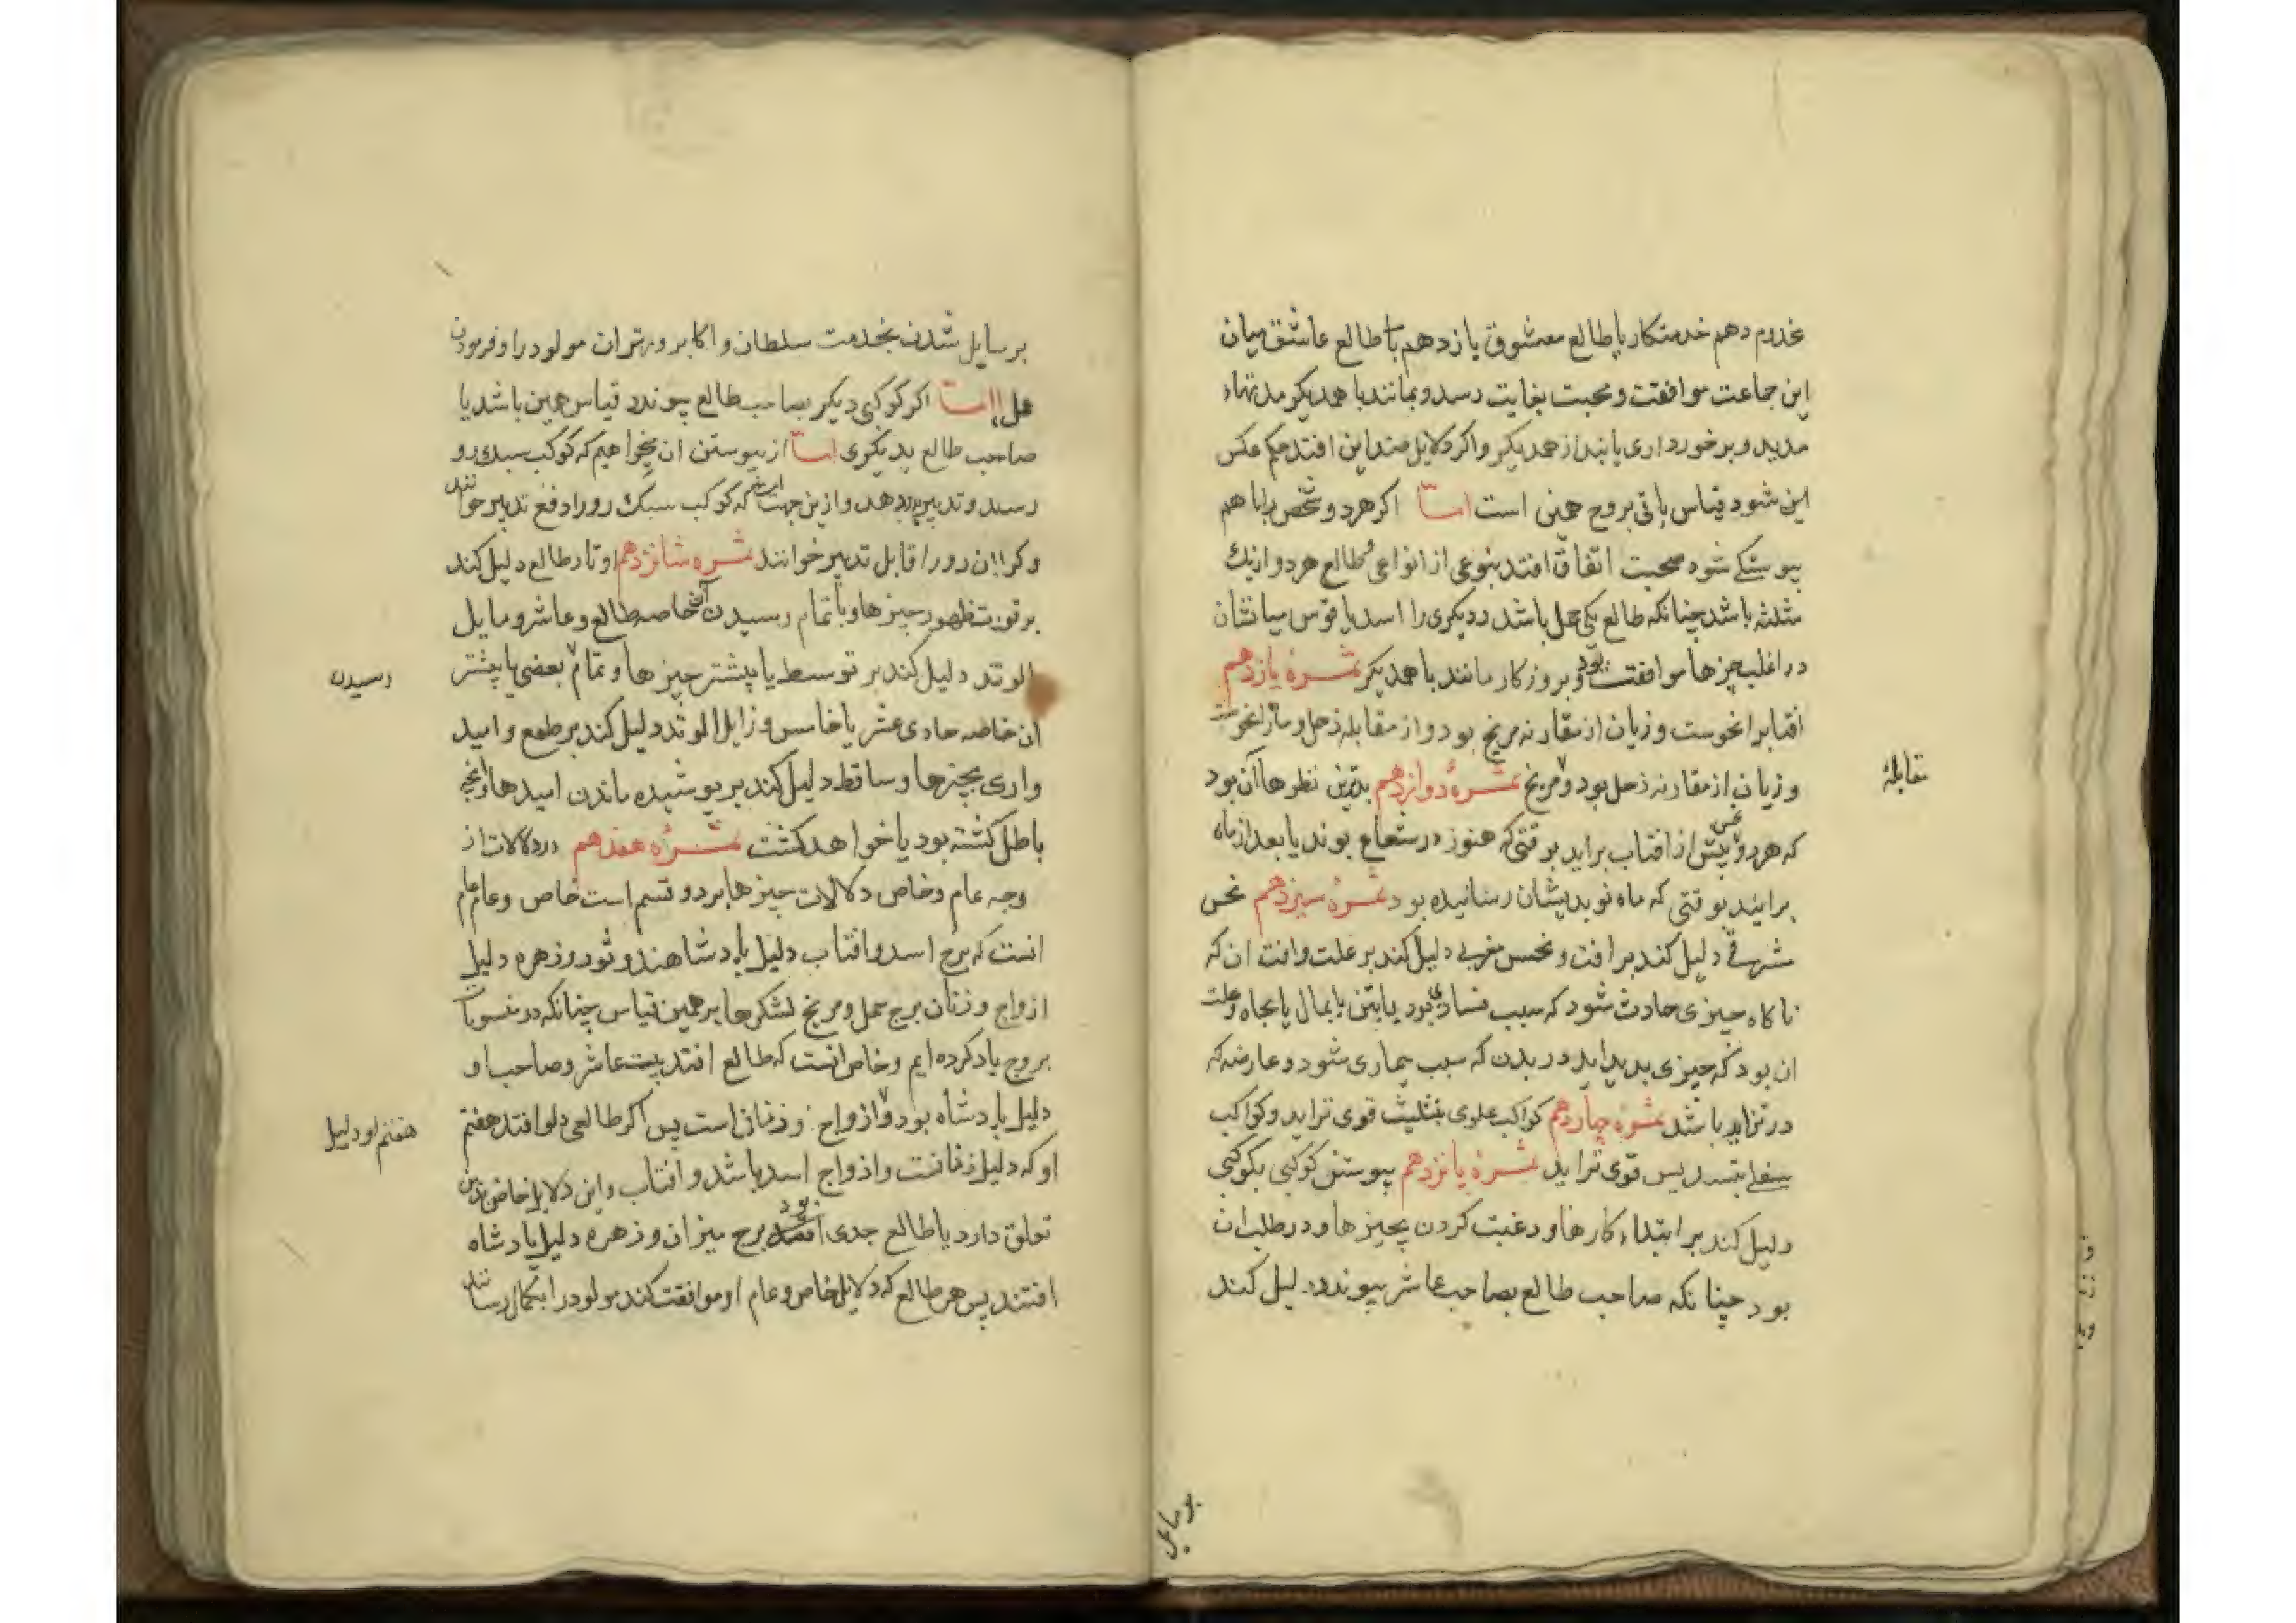 مخدوم دهم خدمتکار یا طالع معشوق یازدهم با طالع عاشق میان
این جماعت موافقت و محبت بغایت رسد و بمانند با همدیکر مدتهاء
مدید و برخورداری یابند از همدیکر و اکر دلایل ضد این افتد حکم عکس
این شود قیاس باقی بروج همین است اما اکر هر دو شخص را با هم
پیوستکی شود صحبت اتفاق افتد بنوعی از انواع و طالع هر دو از یك
مثلثه باشد چنانکه طالع یکی حمل باشد و دیکری را اسد یا قوس میانشان
در اغلب چیزها موافقت بود و بروزکار مانند با همدیکر ثمرهٔ یازدهم
افتابرا نحوست و زیان از مقارنه مریخ بود و از مقابله زحل و ماه را نحوست
و زیان از مقارنه زحل بود و مریخ ثمرهٔ دوازدهم بدترین نظرها آن بود
مقابلهٔ
که هر دو نحس پیش از افتاب براید بوقتی که هنوز در شعاع بوند یا بعد از ماه
برایند بوقتی که ماه نو بدیشان رسانیده بود ثمرهٔ سیزدهم نحس
مشرقی دلیل کند بر افت و نحس مغربی دلیل کند بر علت وافت ان که
ناکاه چیزی حادث شود که سبب فسادی بود یا بتن یا بمال یا بجاه وعلت
ان بود که چیزی بدید اید در بدن که سبب بیماری شود و عارضه که
در تزاید باشد ثمرهٔ چهاردهم کواکب علوی بتثلیث قوی تر اید و کواکب
سفلی بتسدیس قوی تر اید ثمرهٔ پانزدهم پیوستن کوکبی بکوکبی
دلیل کند بر ابتداء کارها و رغبت کردن بچیزها و در طلب ان
بود چنانکه صاحب طالع بصاحب عاشر پیوندد دلیل کند
بر مایل
بر مایل شدن بخدمت سلطان و اکابر و مهتران مولود را و فرمودن
عمل اما اکر کوکبی دیکر بصاحب طالع پیوندد قیاس همین باشد یا
صاحب طالع بدیکری اما از پیوستن ان میخواهیم که کوکب سبك رو
رسد و تدبیر بدو دهد و ازین جهت است که کوکب سبك رو را دافع تدبیر خوانند
و کران رو را قابل تدبیر خوانند ثمره شانزدهم اوتاد طالع دلیل کند
بر قوت ظهور چیزها و بتمام رسیدن آن خاصه طالع و عاشر و مایل
الوتد دلیل کند بر توسط یا پیشتر چیزها و تمام بعضی یا پیشتر
رسیدن
ان خاصه حادی عشر یا خامس و زایل الوتد دلیل کند بر طمع و امید
واری بچیزها و ساقط دلیل کند بر پوشیده ماندن امیدها و انچه
باطل کشته بود یا خواهد کشت ثمرهٔ هفدهم در دلالات از
وجه عام و خاص دلالات چیزها بر دو قسم است خاص و عام عام
انست که برج اسد و افتاب دلیل پادشاهند و ثور و زهره دلیل
ازواج و زنان برج حمل و مریخ لشکرها بر همین قیاس چنانکه در منسوبات
بروج یاد کرده ایم و خاص انست که طالع افتد بیت عاشر و صاحب او
دلیل پادشاه بود و ازواج و زنان است پس اکر طالعی دلو افتد هفتم
هفتم او دلیل
او که دلیل زنانست و ازواج اسد باشد و افتاب و این دلایل خاص بدین
تعلق دارد یا طالع جدی بود برج میزان و زهره دلیل پادشاه
افتند پس هر طالع که دلایل خاص و عام او موافقت کند مولود را بکمال رسانند